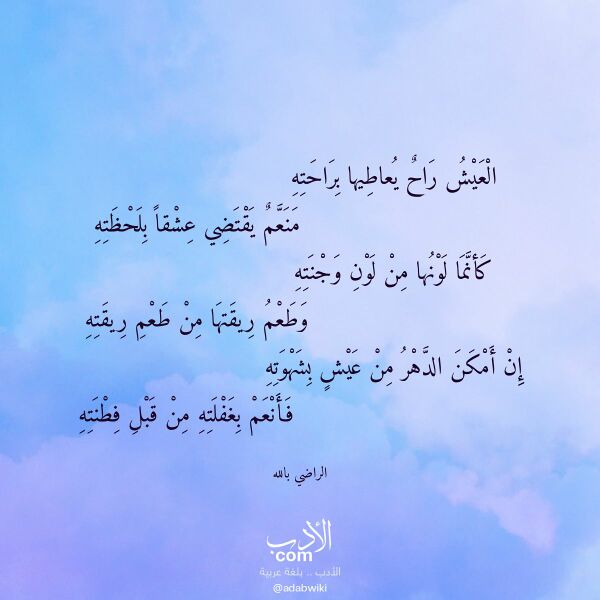 الْعَيْشُ رَاحٌ يُعاطِيها بِرَاحَتِهِ
مَنَعَّمٌ يَقْتَضِي عِشْقاً بِلَحْظَتِهِ
كَأنَّمَا لَوْنُها مِنْ لَوْنِ وَجْنَتِهِ
وَطَعْمُ رِيقَتِهَا مِنْ طَعْمِ رِيقَتِهِ
إِنْ أَمْكَنَ الدَّهْرُ مِنْ عَيْشٍ بِشَهْوَتِهِ
فَأَنْعَمْ بِغَفْلَتِهِ مِنْ قَبْلِ فِطْنَتِهِ
الراضي بالله
الأدب
com
الأدب .. بلغة عربية
@adabwiki